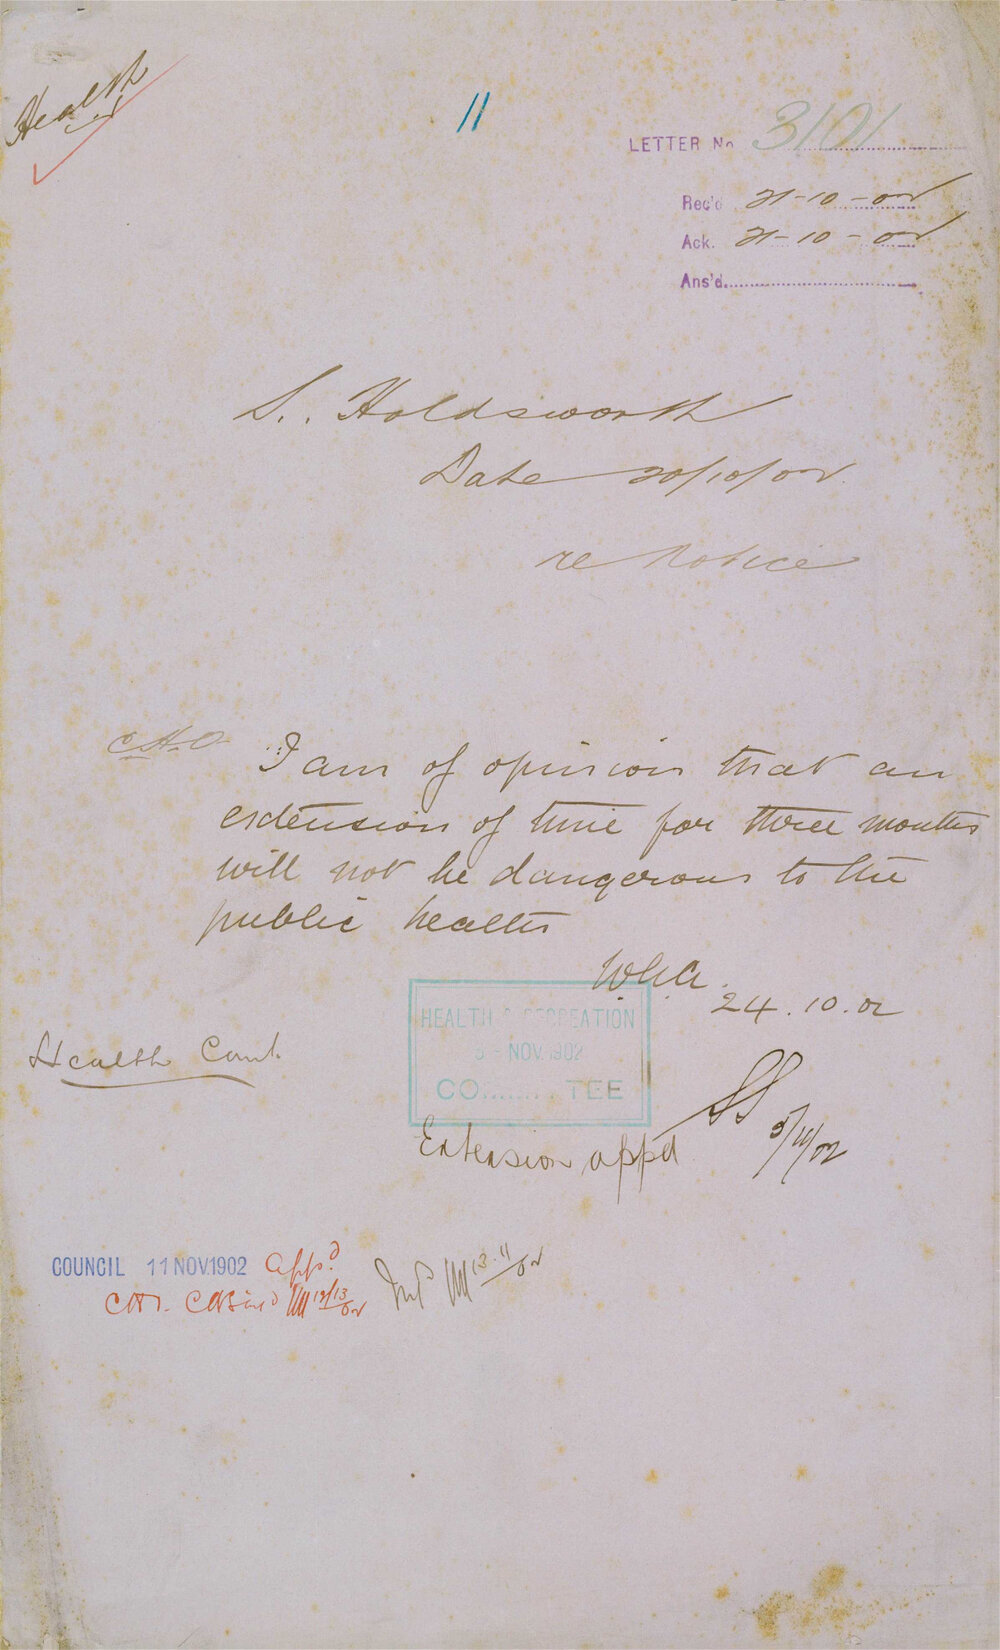 Health
11
LETTER No 3101
Rec'd 21-10-02
Ack. 21-10-02
Ans'd
S. Holdsworth
Date 20/10/02
re Notice
C.H.O
I am of opinion that an
extension of time for three months
will not be dangerous to the
public health
24.10.02
HEALTH & RECREATION
5 - NOV. 1902
CO........TEE
Health Comt.
Extension appd
5/11/02
COUNCIL 11 NOV. 1902 appd
13.11/02